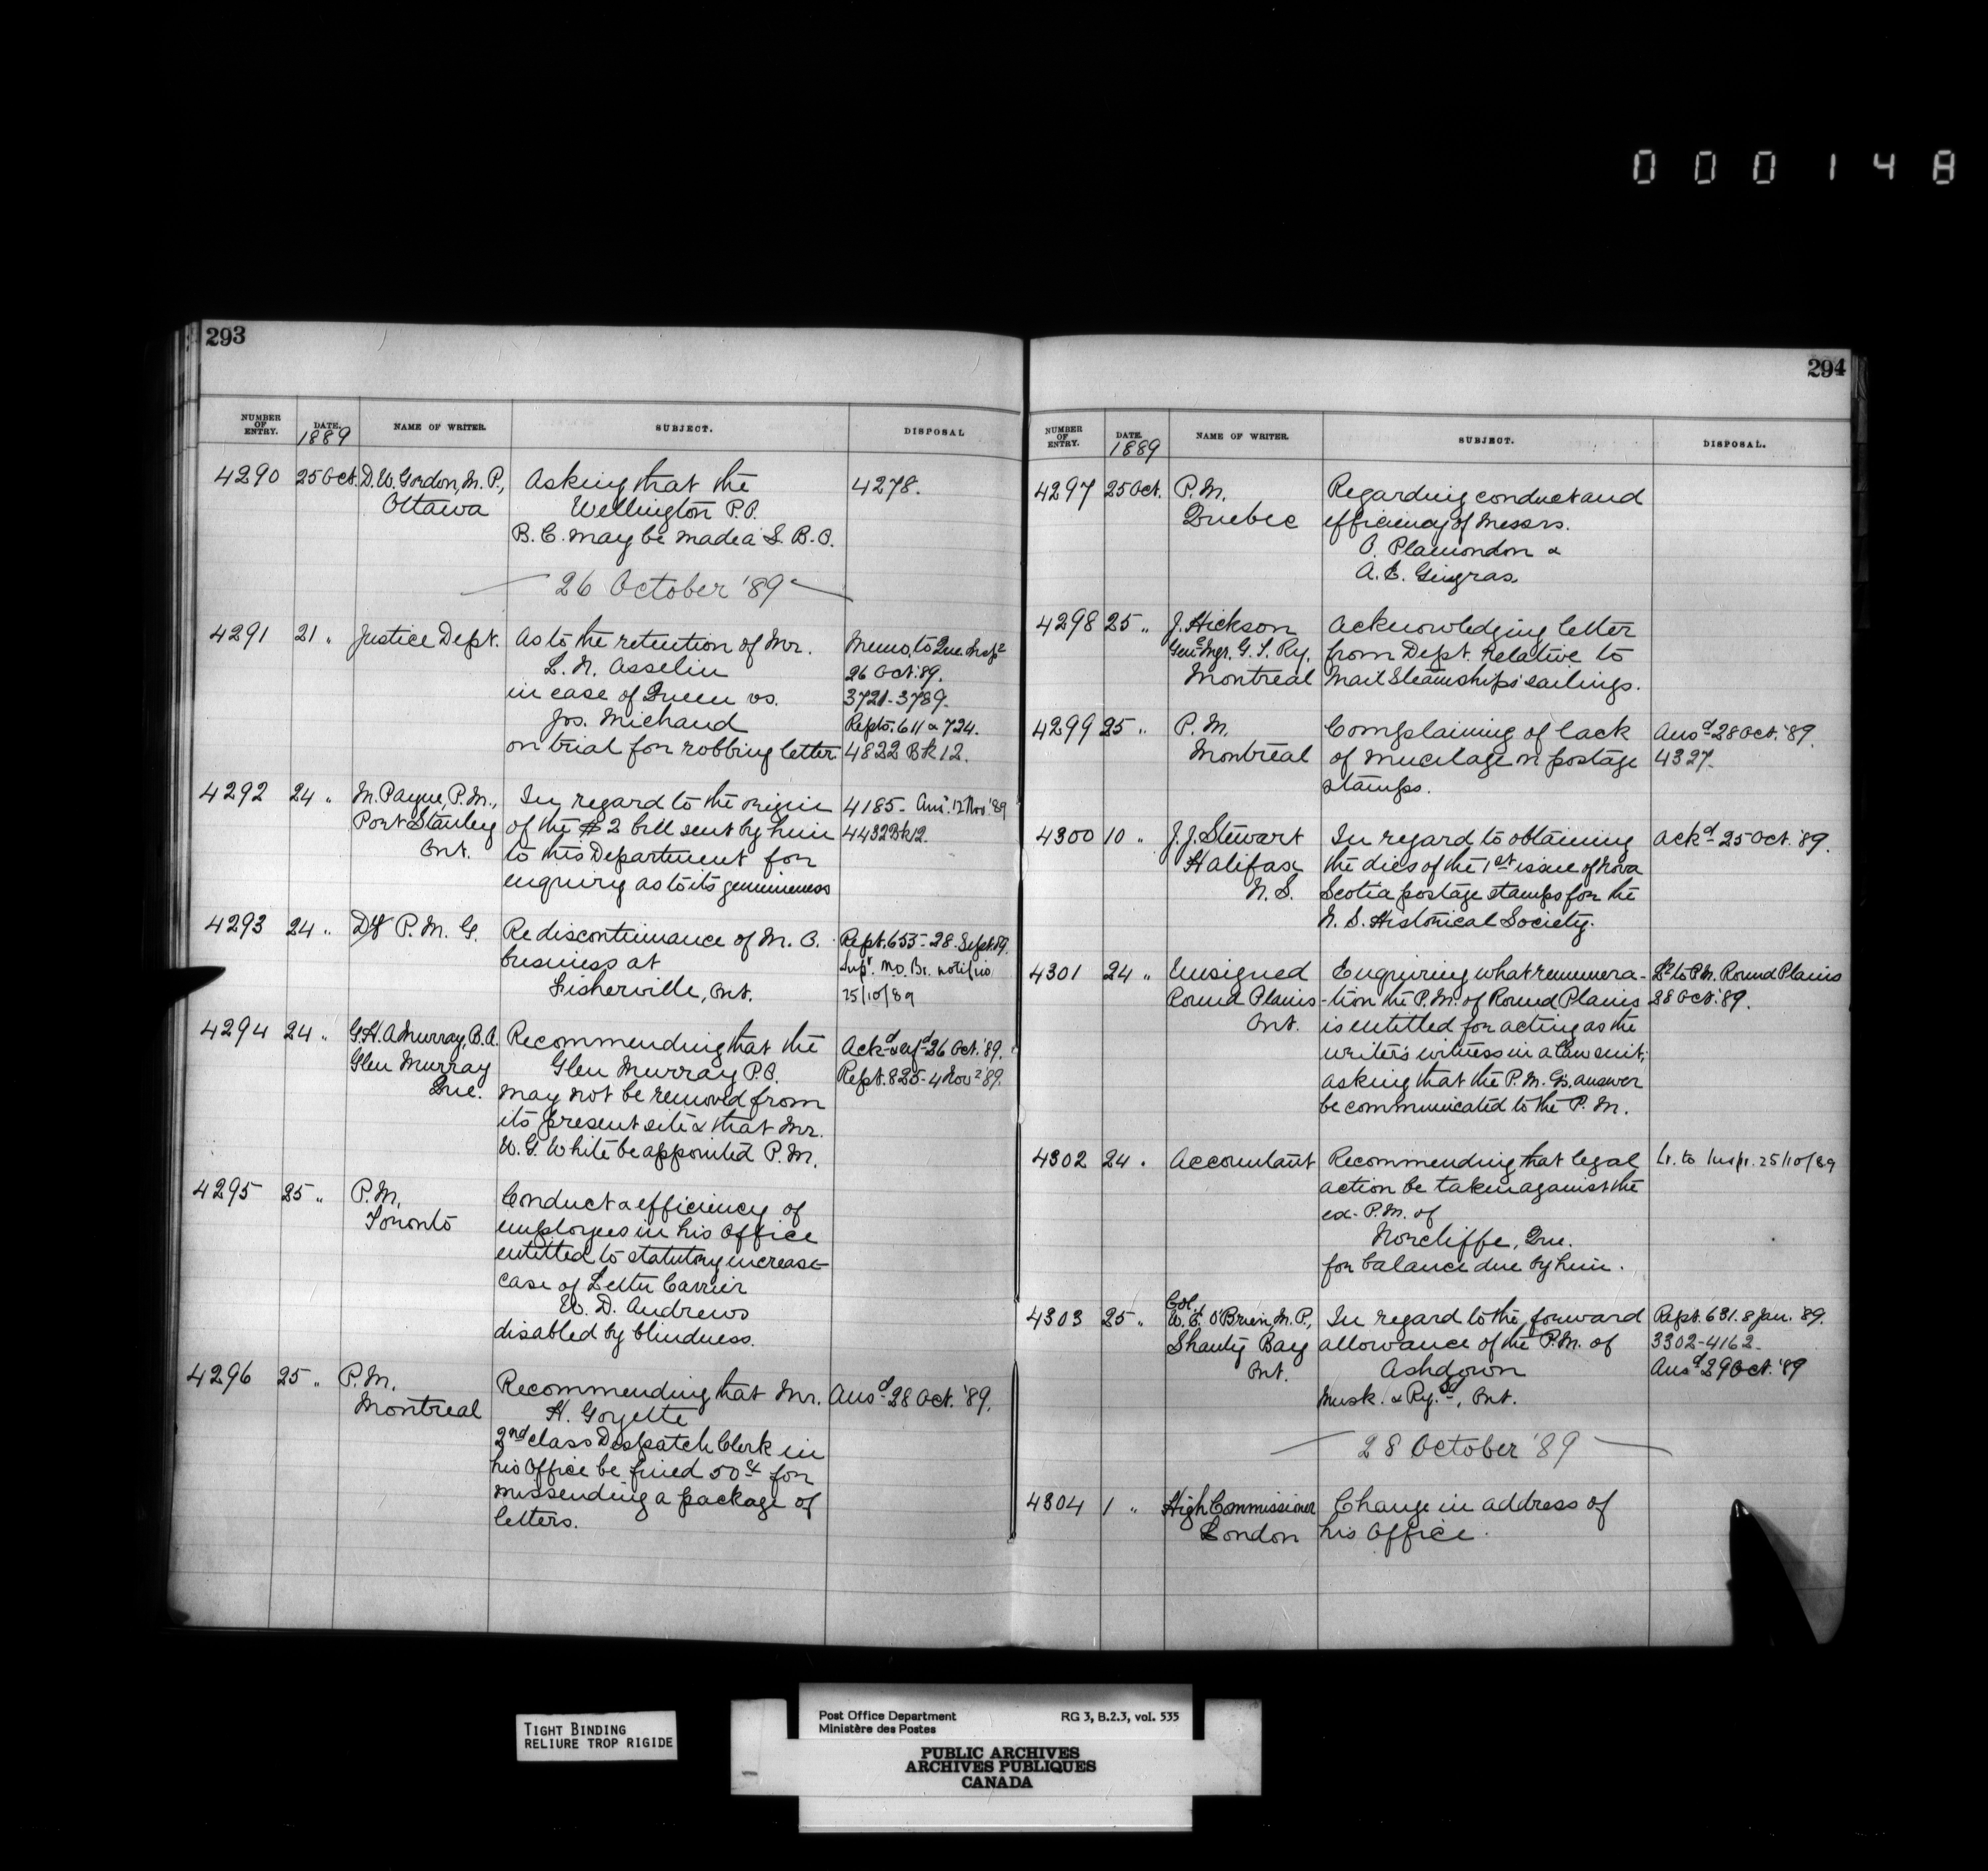 000148
293
NUMBER OF ENTRY.
DATE.
1889
NAME OF WRITER.
SUBJECT.
DISPOSAL
4290 25 Oct. D. W. Gordon, M. P., Asking that the 4278.
Ottawa Wellington P.O.
B. C. may be made a S. B. O.
26 October '89
4291 21 " Justice Dept. As to the retention of Mr. Memo, to Que Insp
L. N. Asselin 26 Oct. '89.
in case of Queen vs. 3721-3789.
Jos. Michaud Repts. 611 & 724.
on trial for robbing letter. 4822 Bk 12.
4292 24 " M. Payne, P. M., In regard to the origin 4185- Ans. 12 Nov '89
Port Stanley of the $2 bill sent by him 4432 Bk 12.
Ont. to this Department for
enquiry as to its genuineness
4293 24 " P. M. G. Re discontinuance of M. O. Rept. 653-28. Sept. 89.
business at Supt. M.O. Br. notifies
Fisherville, Ont. 25/10/89
4294 24 " G. H. A. Murray, B. A. Recommending that the Ackd 26 Oct. '89.
Glen Murray Glen Murray P.O. Rept. 825-4 Nov '89.
Que. may not be removed from
its present site & that Mr.
W. G. White be appointed P. M.
4295 25 " P. M. Conduct & efficiency of
Toronto employees in his Office
entitled to statutory increase
case of Letter Carrier
W. D. Andrews
disabled by blindness.
4296 25 " P. M. Recommending that Mr. Ansd 28 Oct. '89.
Montreal H. Goyette
2nd class Despatch Clerk in
his Office be fined 50c for
missending a package of
letters.
294
NUMBER OF ENTRY.
DATE.
1889
NAME OF WRITER.
SUBJECT.
DISPOSAL.
4297 25 Oct. P. M. Regarding conduct and
Quebec efficiency of Messrs.
O. Plamondon &
A. E. Gingras.
4298 25 " J. Hickson Acknowledging letter
Genl Mgr. G. T. Ry. from Dept. relative to
Montreal Mail Steamships' sailings.
4299 25 " P. M. Complaining of lack Ansd 28 Oct. '89.
Montreal of mucilage on postage 4327.
stamps.
4300 10 " J. J. Stewart In regard to obtaining Ackd 25 Oct. '89.
Halifax the dies of the 1st issue of Nova
N. S. Scotia postage stamps for the
N. S. Historical Society.
4301 24 " Unsigned Enquiring what remunera- Lr to P. M. Round Plains
Round Plains tion the P. M. of Round Plains 28 Oct. '89.
Ont. is entitled for acting as the
writer's witness in a law suit;
asking that the P. M. G's. answer
be communicated to the P. M.
4302 24 " Accountant Recommending that legal Lr. to Inspr. 25/10/89
action be taken against the
ex- P. M. of
Norcliffe, Que.
for balance due by him.
4303 25 " Col. W. E. O'Brien, M. P., In regard to the forward Rept. 631. 8 Jan. '89.
Shanty Bay allowance of the P. M. of 3302-4162.
Ont. Ashdown Ansd 29 Oct. '89
Musk. & Ry. Sd, Ont.
28 October '89
4304 1 " High Commissioner Change in address of
London his Office.
TIGHT BINDING
RELIURE TROP RIGIDE
Post Office Department RG 3, B.2.3, vol. 535
Ministère des Postes
PUBLIC ARCHIVES
ARCHIVES PUBLIQUES
CANADA